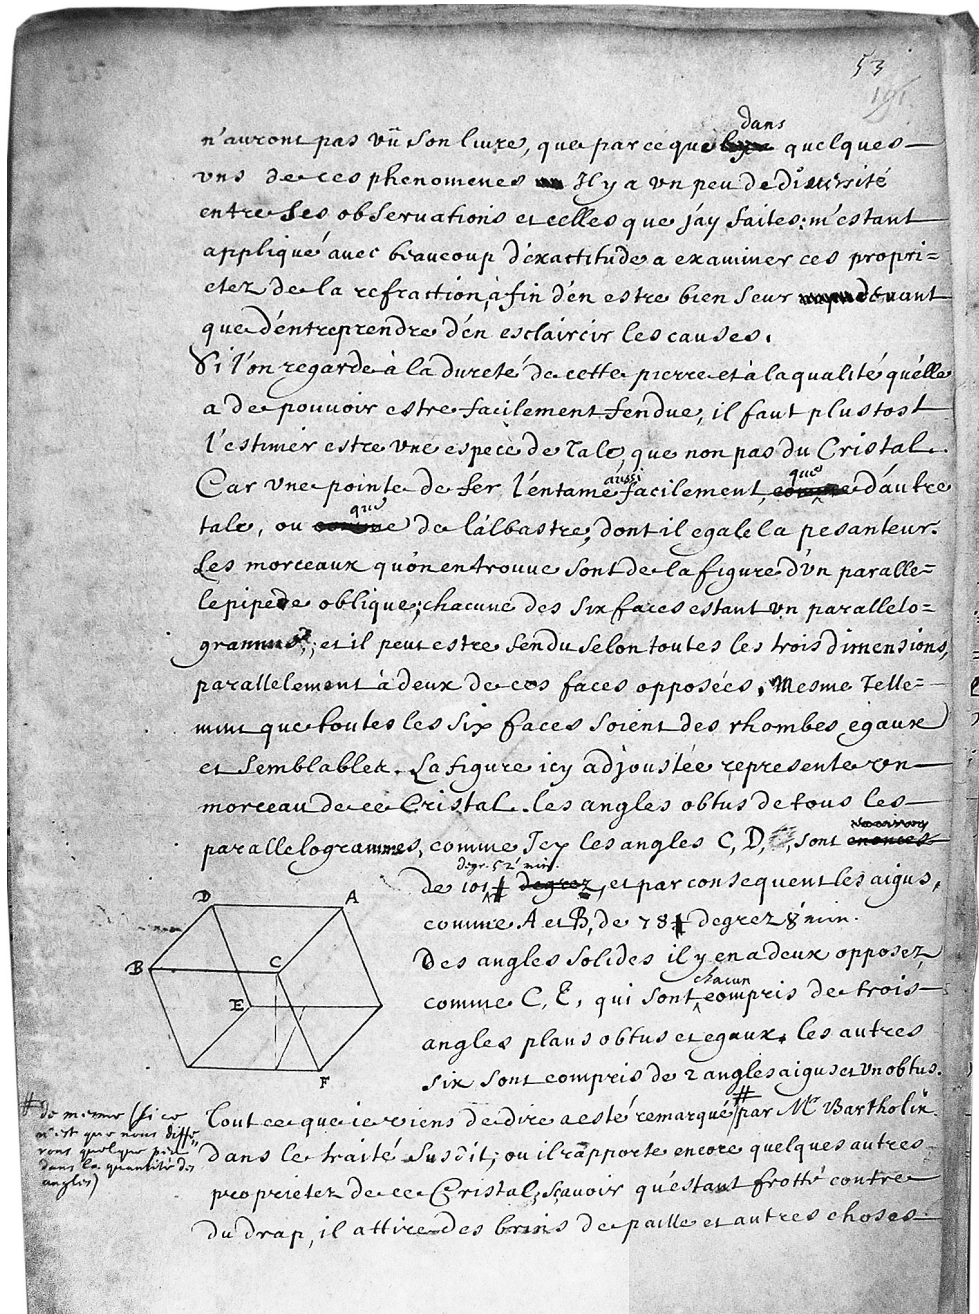 53
191
dans
n'auront pas vü son livre, que parceque quelques
uns de ces phenomenes Il y a un peu de diversité
entre ses observations et celles que j'ay faites: m'estant
appliqué avec beaucoup d'exactitude a examiner ces propri=
etez de la refraction, afin d'en estre bien seur devant
que d'entreprendre d'en esclaircir les causes.
Si l'on regarde à la dureté de cette pierre et à la qualité qu'elle
a de pouvoir estre facilement fendue, il faut plustost
l'estimer estre une espece de Talc, que non pas du Cristal.
aussi que
Car une pointe de fer l'entame facilement, comme d'autre
que
talc, ou comme de l'albastre, dont il egale la pesanteur.
Les morceaux qu'on en trouve sont de la figure d'un paralle=
lepipede oblique; chacune des six faces estant un parallelo=
gramme; et il peut estre fendu selon toutes les trois dimensions,
parallelement à deux de ces faces opposées. Mesme Telle=
ment que toutes les six faces soient des rhombes egaux
et semblables. La figure icy adjoustée represente un
morceau de ce Cristal. les angles obtus de tous les
parallelogrammes, comme Icy les angles C, D, sont
degr. 52 min.
de 101 degrez, et par consequent les aigus,
comme A et B, de 78 degrez 8 min.
Des angles solides il y en a deux opposez
chacun
comme C, E, qui sont compris de trois
angles plans obtus et egaux. les autres
six sont compris de 2 angles aigus et un obtus.
D A
B C
E
F
Tout ce que je viens de dire a esté remarqué # par Mr Bartholin
dans le traité susdit; ou il rapporte encore quelques autres
proprietez de ce Cristal; sçavoir qu'estant frotté contre
du drap, il attire des brins de paille et autres choses
# de mesme (si ce
n'est que nous diffe=
rons quelque peu
dans la quantité des
angles)